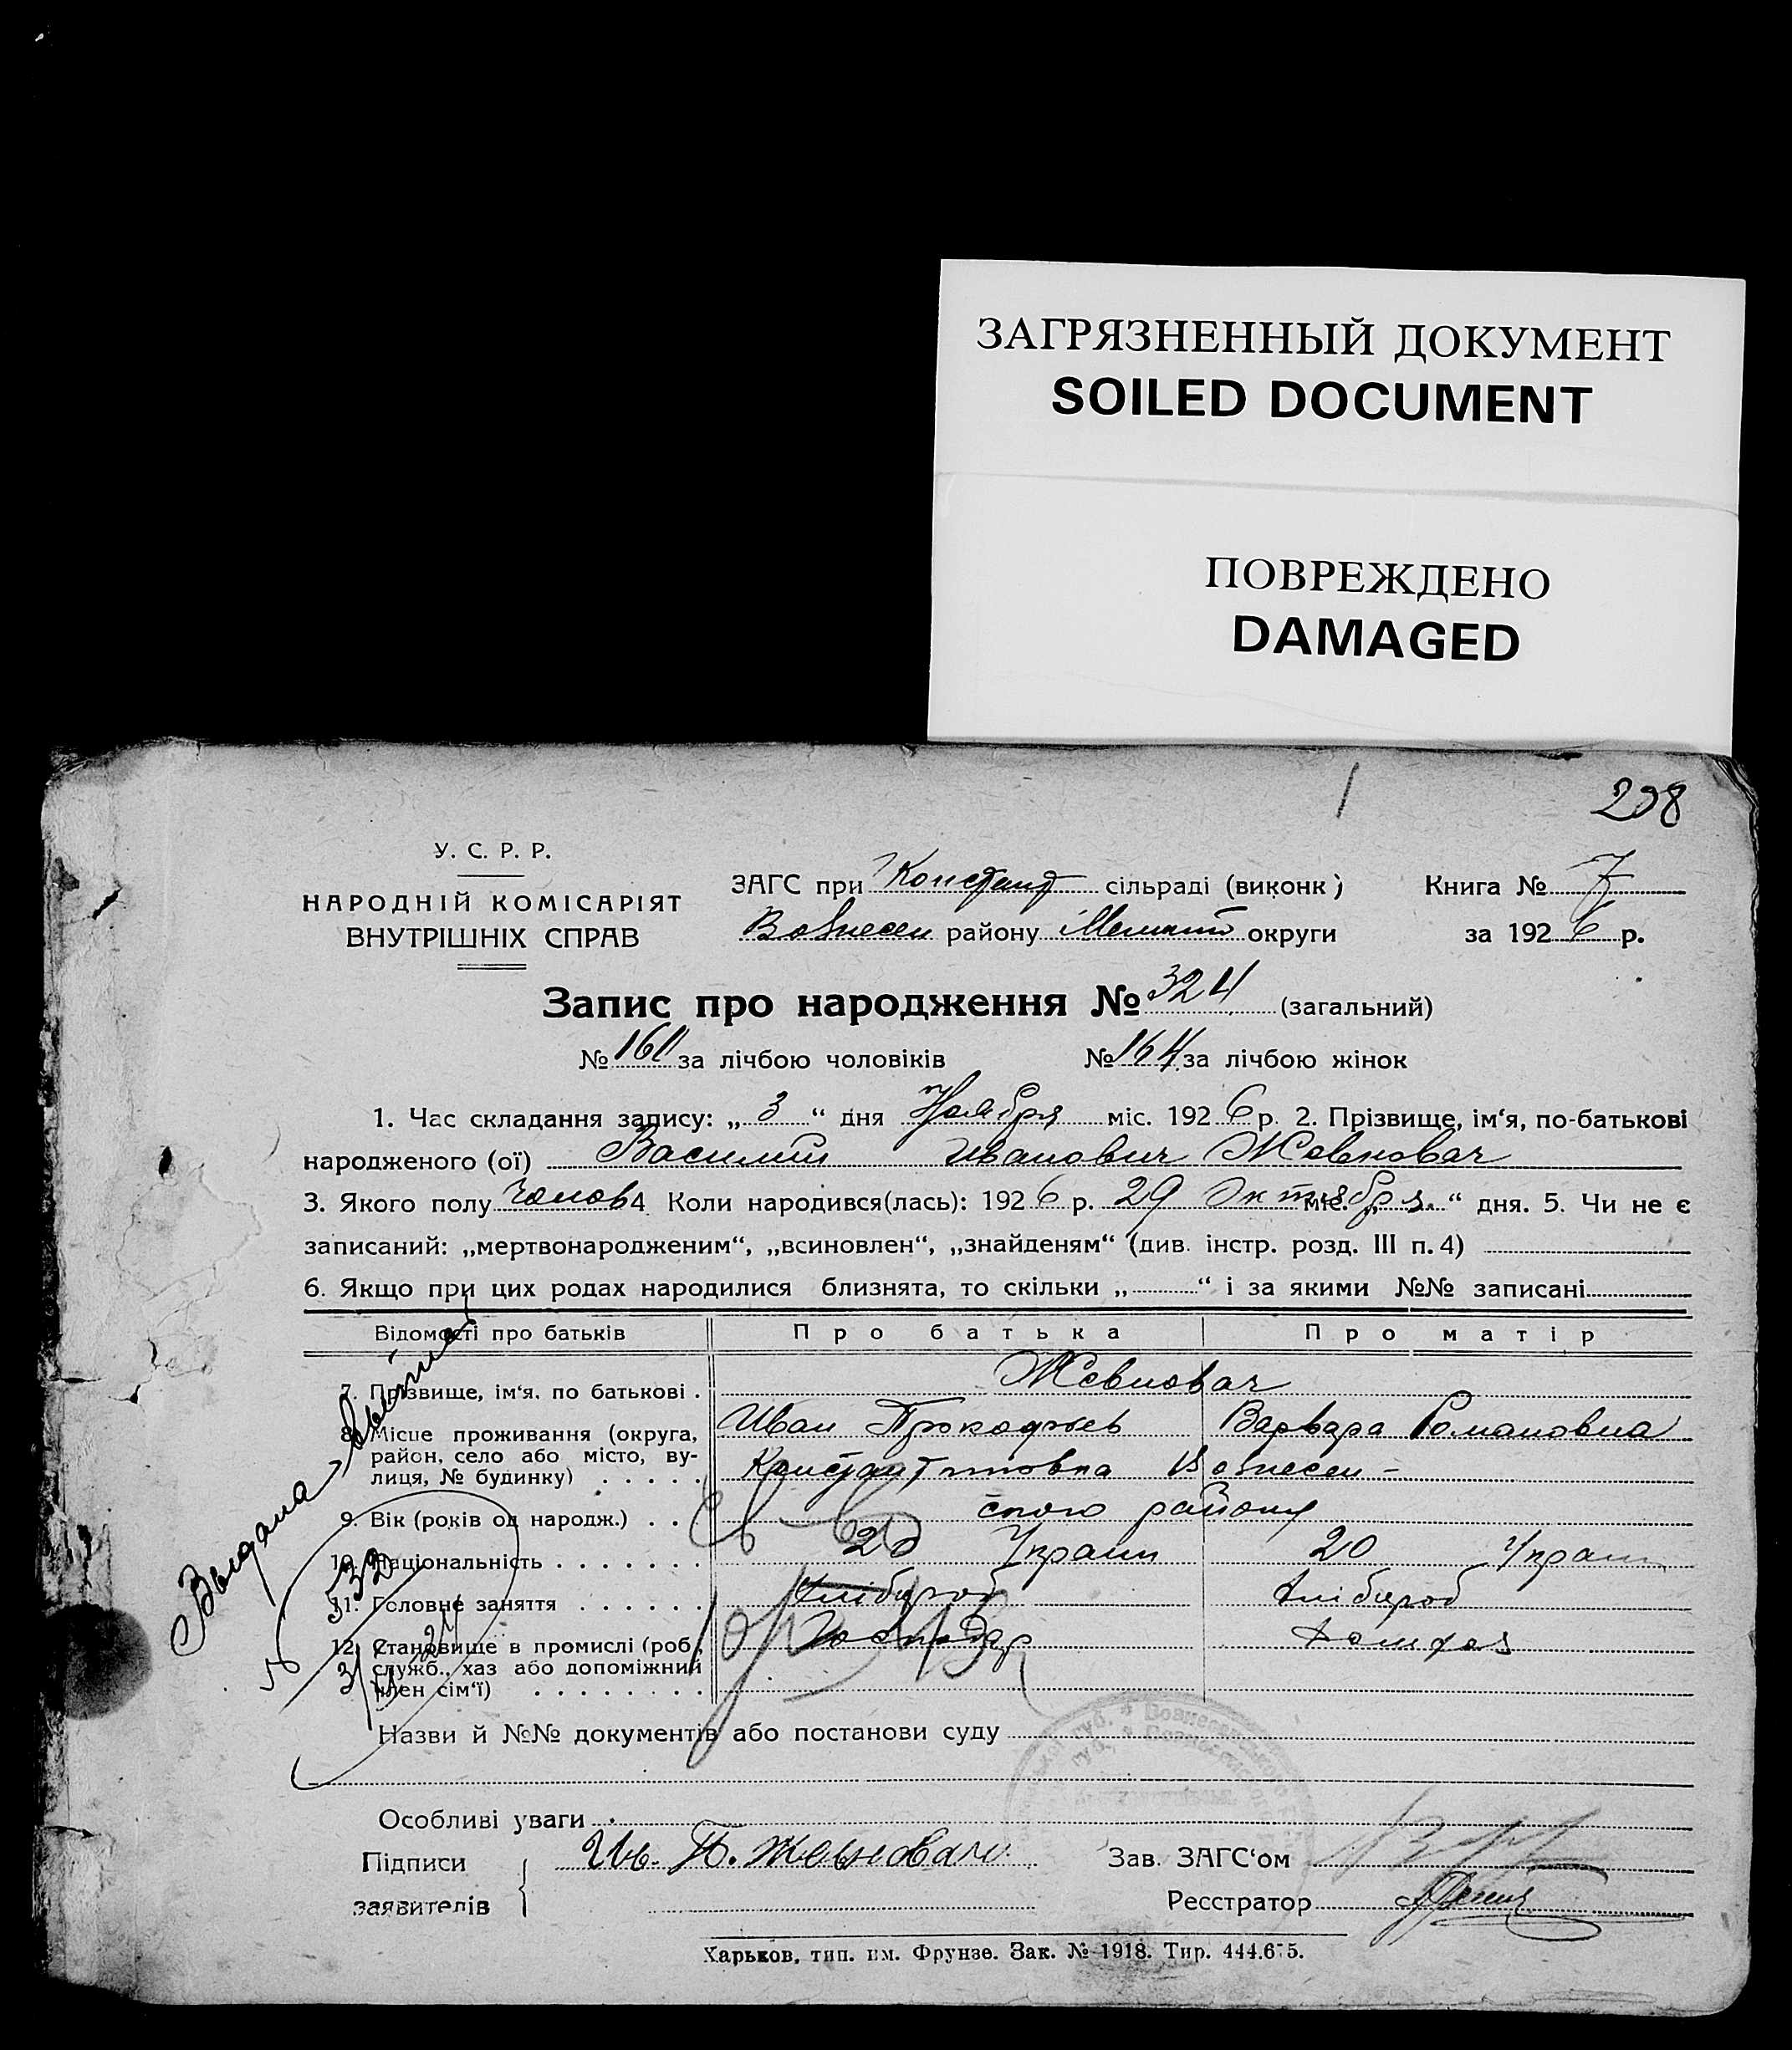 ЗАГРЯЗНЕННЫЙ ДОКУМЕНТ
SOILED DOCUMENT
ПОВРЕЖДЕНО
DAMAGED
298
У. С. Р. Р.
НАРОДНІЙ КОМІСАРІЯТ
ВНУТРІШНІХ СПРАВ
ЗАГС при Констант сільраді (виконк) Книга № 7
Вознесен району округи за 1926 р.
Запис про народження № 324 (загальний)
№ 160 за лічбою чоловіків № 164 за лічбою жінок
1. Час складання запису: „3“ дня Ноября міс. 1926 р. 2. Прізвище, ім‘я, по-батькові
народженого (ої) Василий Иванович Жевновач
3. Якого полу Чолов 4 Коли народився(лась): 1926 р. 29 Октября міс. „ “ дня. 5. Чи не є
записаний: „мертвонародженим“, „всиновлен“, „знайденям“ (див. інстр. розд. III п. 4)
6. Якщо при цих родах народилися близнята, то скільки „ “ і за якими №№ записані
Відомості про батьків Про батька Про матір
7. Прізвище, ім‘я, по батькові . Жевновач
8. Місце проживання (округа, Иван Прокофьев Варвара Романовна
район, село або місто, ву-
лиця, № будинку) . . . . . Константиновка Вознесен-
9. Вік (років од народж.) . . . ского району
10. Національність . . . . . . . 20 Украин 20 Украин
11. Головне заняття . . . . . . Хлібороб Хлібороб
12. Становище в промислі (роб., Господар
служб., хаз або допоміжний
член сім‘ї) . . . . . . . .
Выдана
532
Назви й №№ документів або постанови суду
Особливі уваги
Підписи Ив. П. Жевновач Зав. ЗАГС‘ом
заявителів Реєстратор
Харьков, тип. им. Фрунзе. Зак. № 1918. Тир. 444.675.